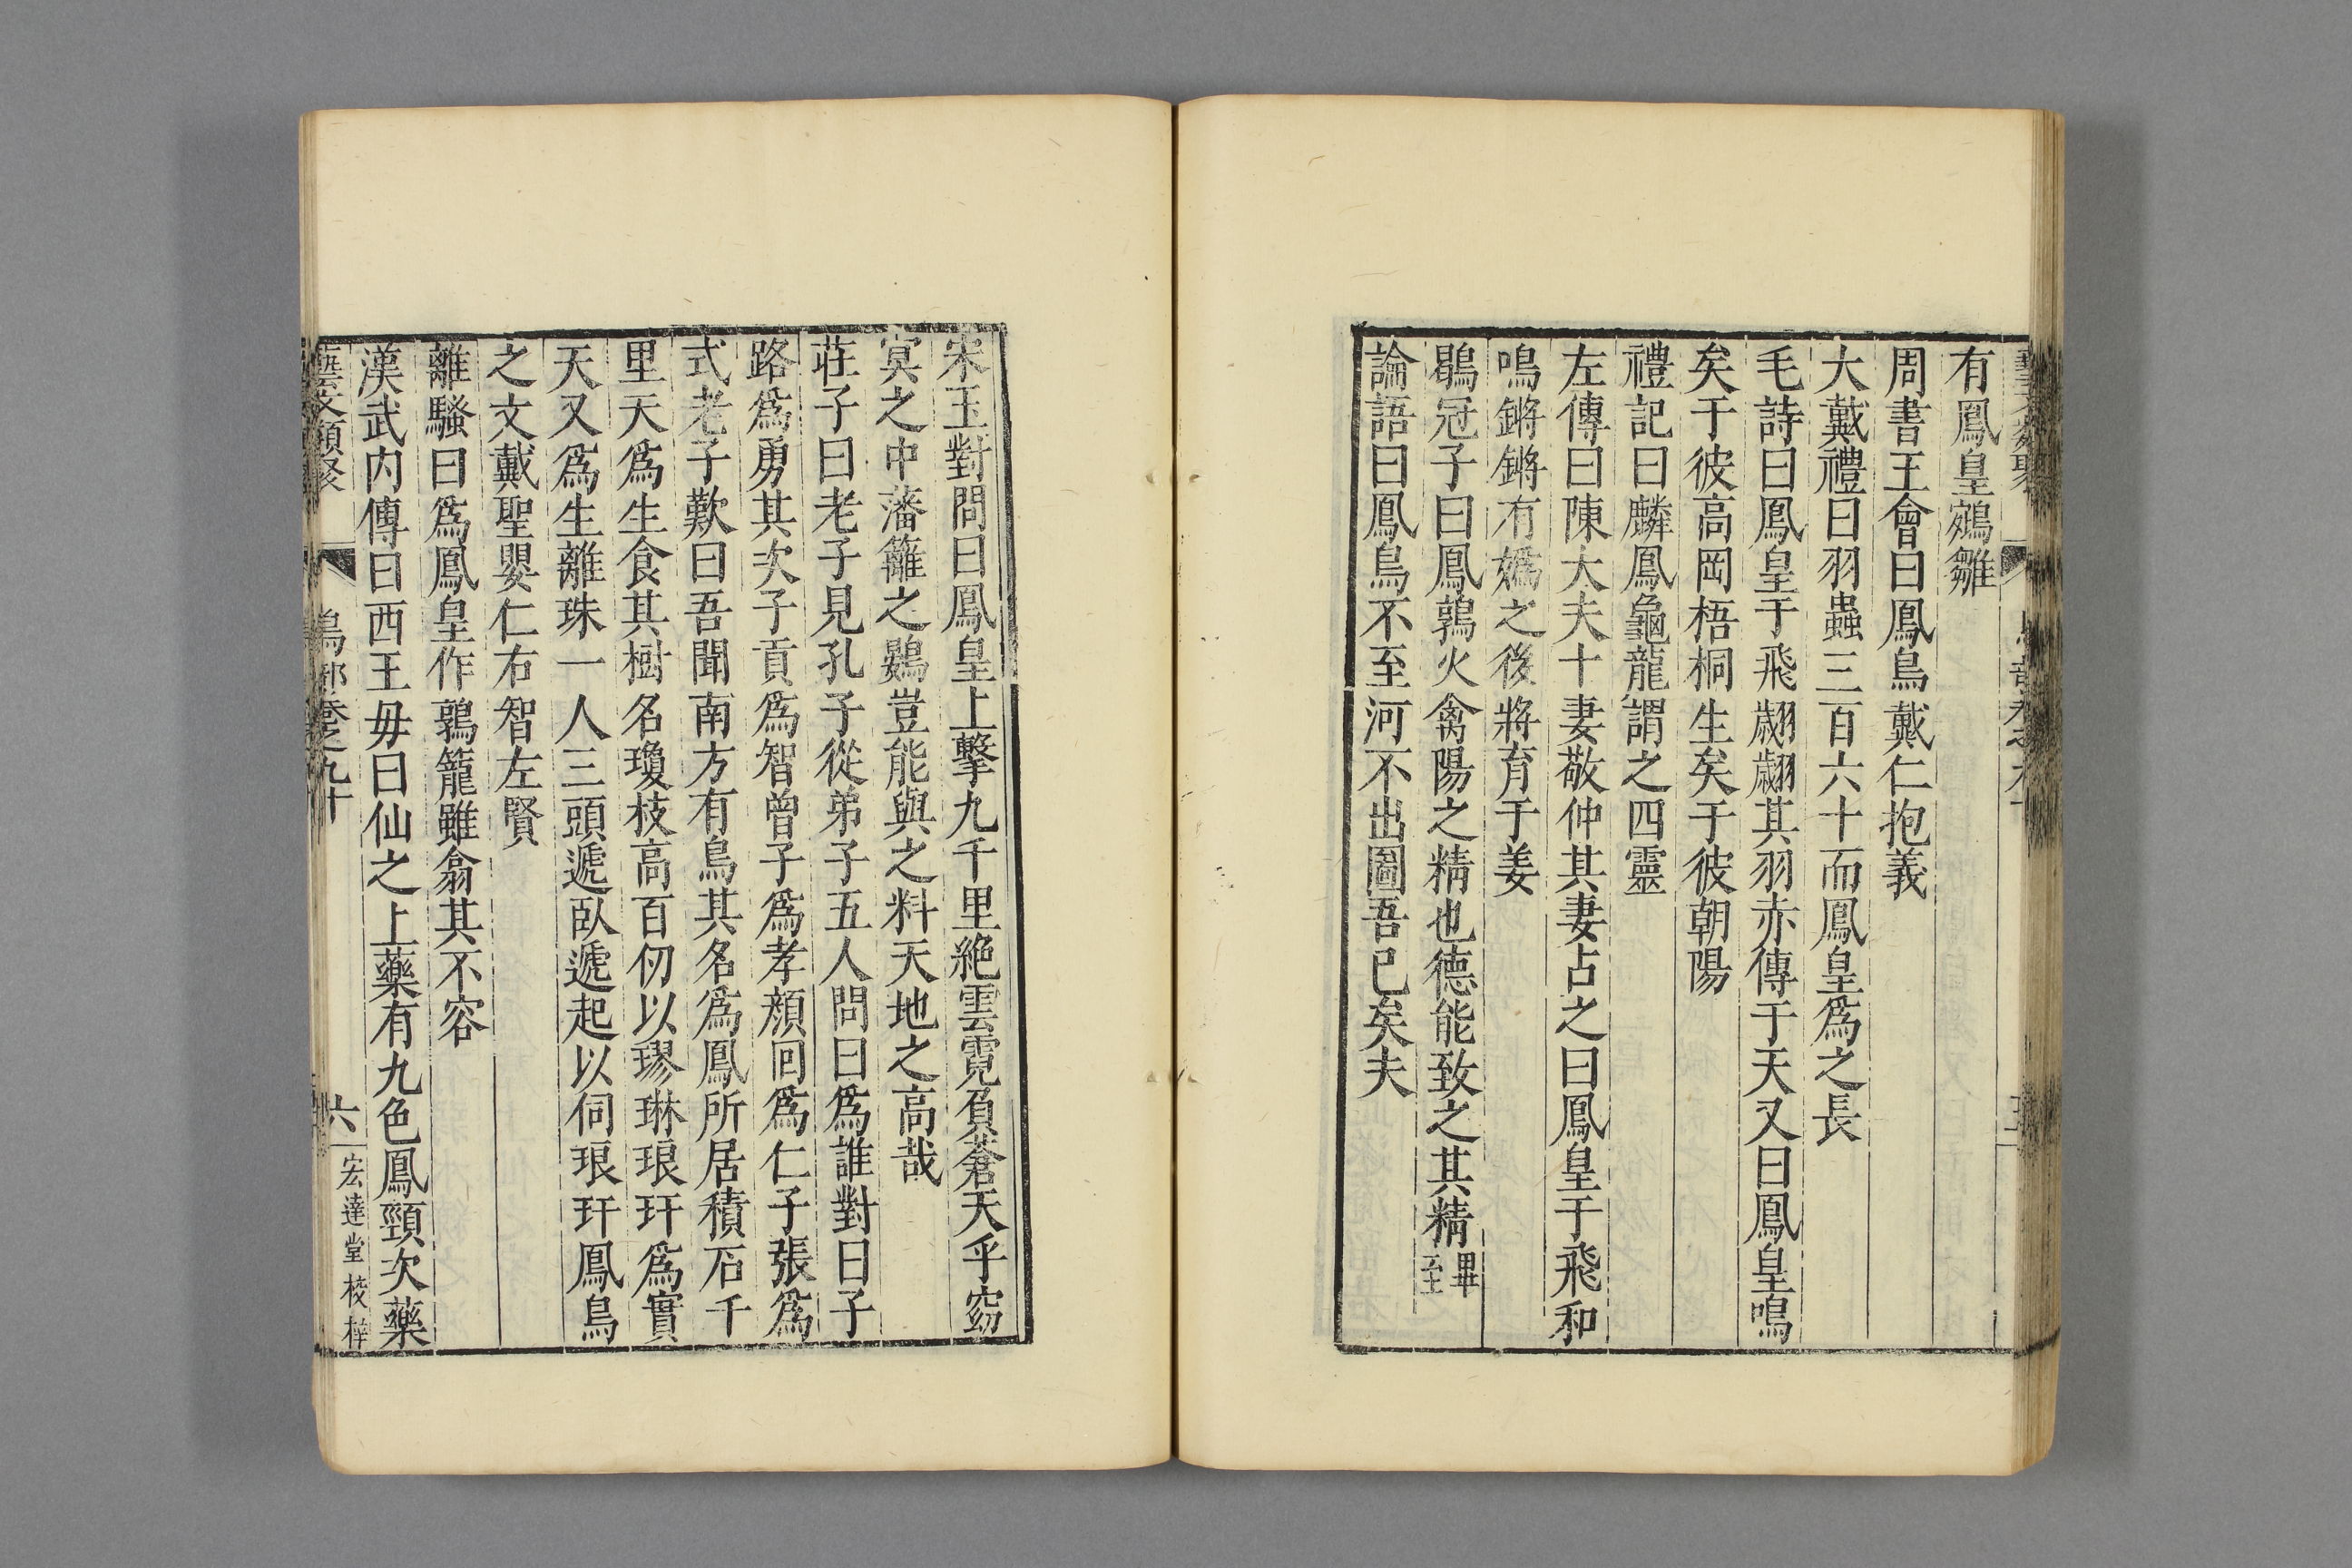 有鳳皇鵷雛
周書王會曰鳳鳥戴仁抱義
大戴禮曰羽蟲三百六十而鳳皇爲之長
毛詩曰鳳皇于飛翽翽其羽亦傳于天又曰鳳皇鳴
矣于彼高岡梧桐生矣于彼朝陽
禮記曰麟鳳龜龍謂之四靈
左傳曰陳大夫十妻敬仲其妻占之曰鳳皇于飛和
鳴鏘鏘有嬀之後將育于姜
鶡冠子曰鳳鶉火禽陽之精也德能致之其精畢至
論語曰鳳鳥不至河不出圖吾已矣夫
宋玉對問曰鳳皇上擊九千里絶雲霓負蒼天乎窈
冥之中藩籬之鷃豈能與之料天地之高哉
莊子曰老子見孔子從弟子五人問曰爲誰對曰子
路爲勇其次子貢爲智曾子爲孝顔回爲仁子張爲
式老子歎曰吾聞南方有鳥其名爲鳳所居積石千
里天爲生食其樹名瓊枝高百仞以璆琳琅玕爲實
天又爲生離珠一人三頭遞臥遞起以伺琅玕鳳鳥
之文戴聖嬰仁右智左賢
離騷曰爲鳳皇作鶉籠雖翕其不容
漢武内傳曰西王毋曰仙之上藥有九色鳳頸次藥
藝文類聚 鳥部卷之九十 六 宏達堂校梓